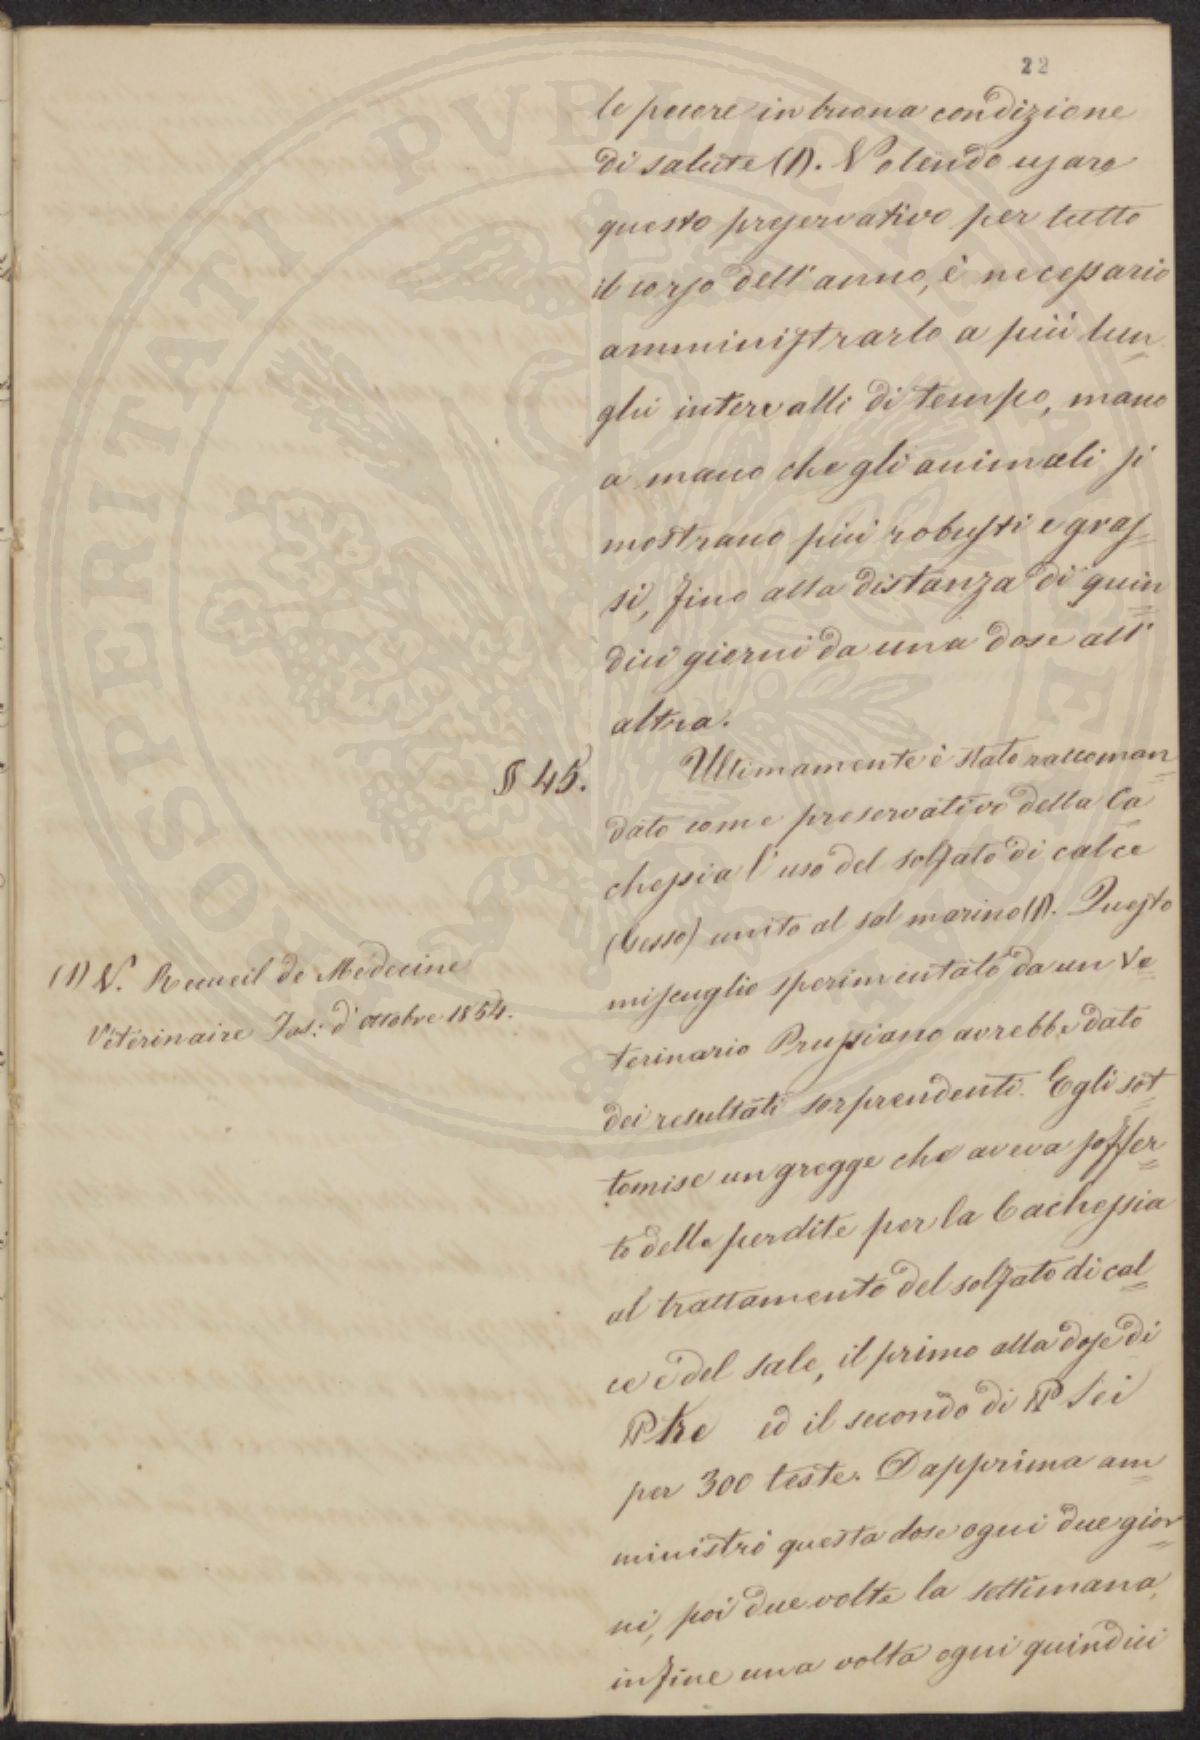 22
le pecore in buona condizione
di salute (1). Volendo usare
questo preservativo per tutto
il corso dell'anno, è necessario
amministrarlo a più lun
ghi intervalli di tempo, mano
a mano che gli animali si
mostrano più robusti e gras
si, fino alla distanza di quin
dici giorni da una dose all'
altra.
§ 45.
Ultimamente è stato raccoman
dato come preservativo della Ca
chessia l'uso del solfato di calce
(Gesso) unito al sal marino (1). Questo
miscuglio sperimentato da un Ve
terinario Prussiano avrebbe dato
dei resultati sorprendenti. Egli sot
tomise un gregge che aveva soffer
to delle perdite per la Cachessia
al trattamento del solfato di cal
ce e del sale, il primo alla dose di
℔ tre ed il secondo di ℔ sei
per 300 teste. Dapprima am
ministrò questa dose ogni due gior
ni, poi due volte la settimana,
infine una volta ogni quindici
(1) V. Recueil de Médecine
Vétérinaire Fas: d'ottobre 1854.
PROSPERITATI PVBLICAE